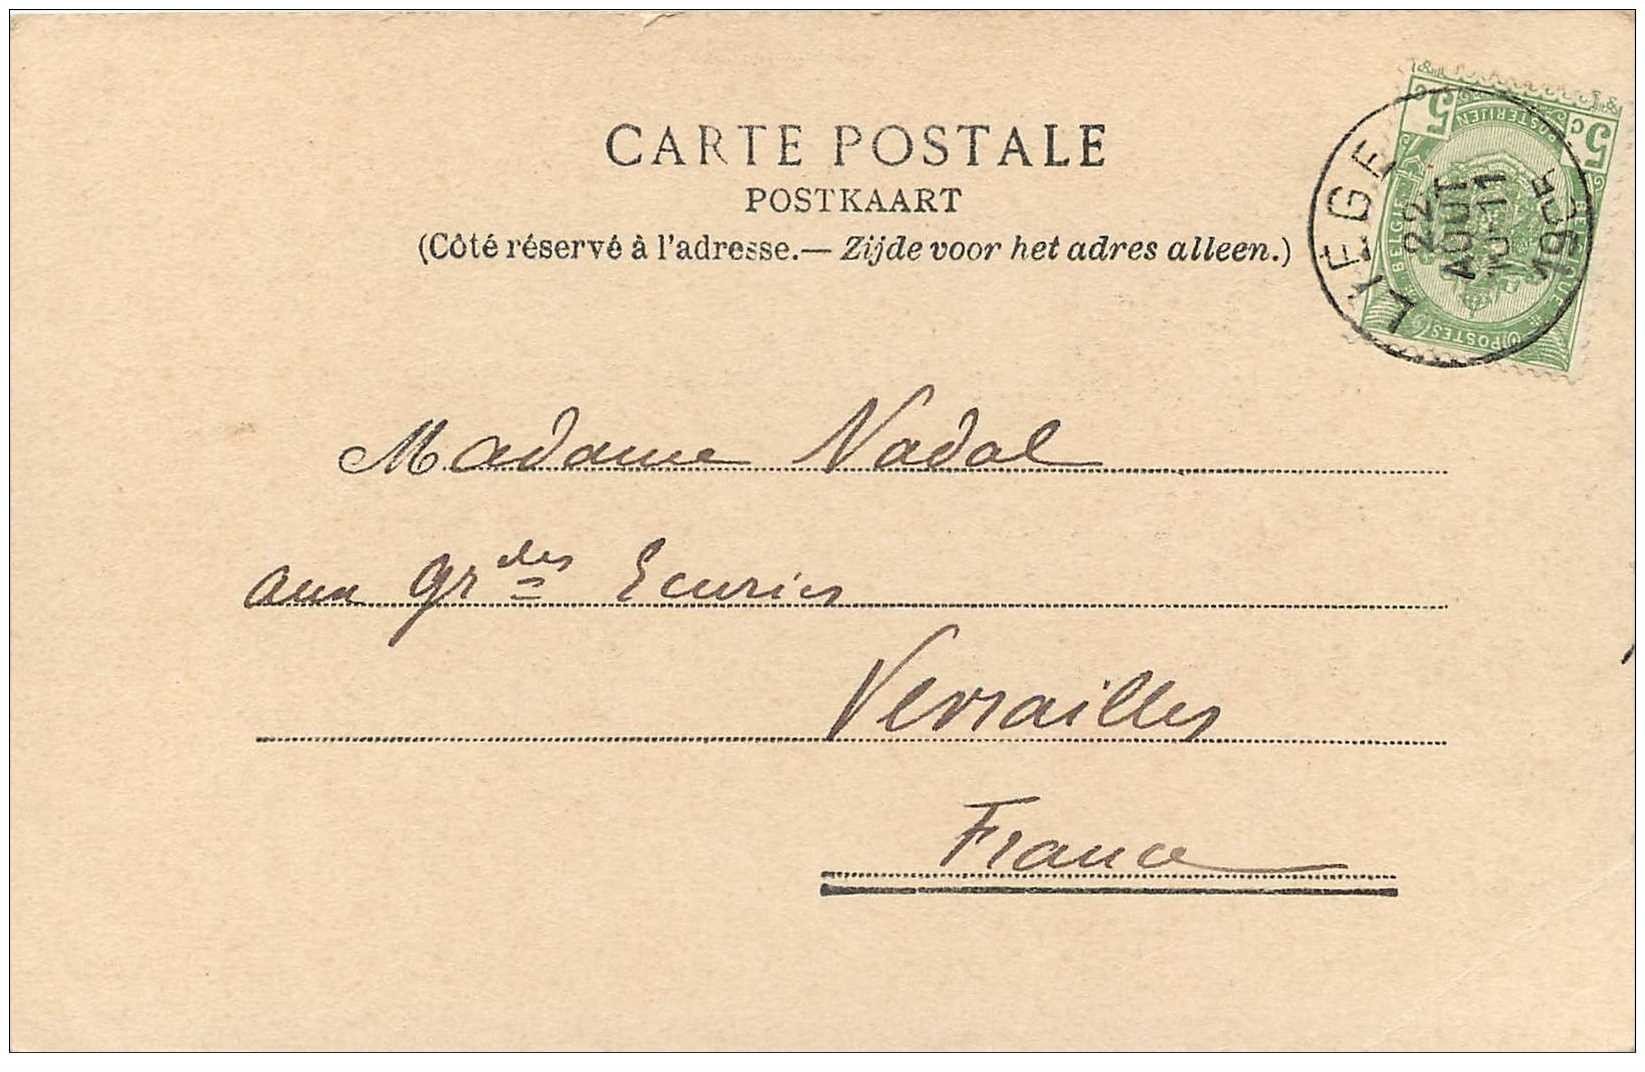 CARTE POSTALE
POSTKAART
(Côté réservé à l'adresse.— Zijde voor het adres alleen.)
5c 5c
POSTERIJEN
BELGIË BELGIQUE
POSTES
LIEGE
22
AOUT
10-11
Madame Nadal
aux grdes Ecuries
Versailles
France